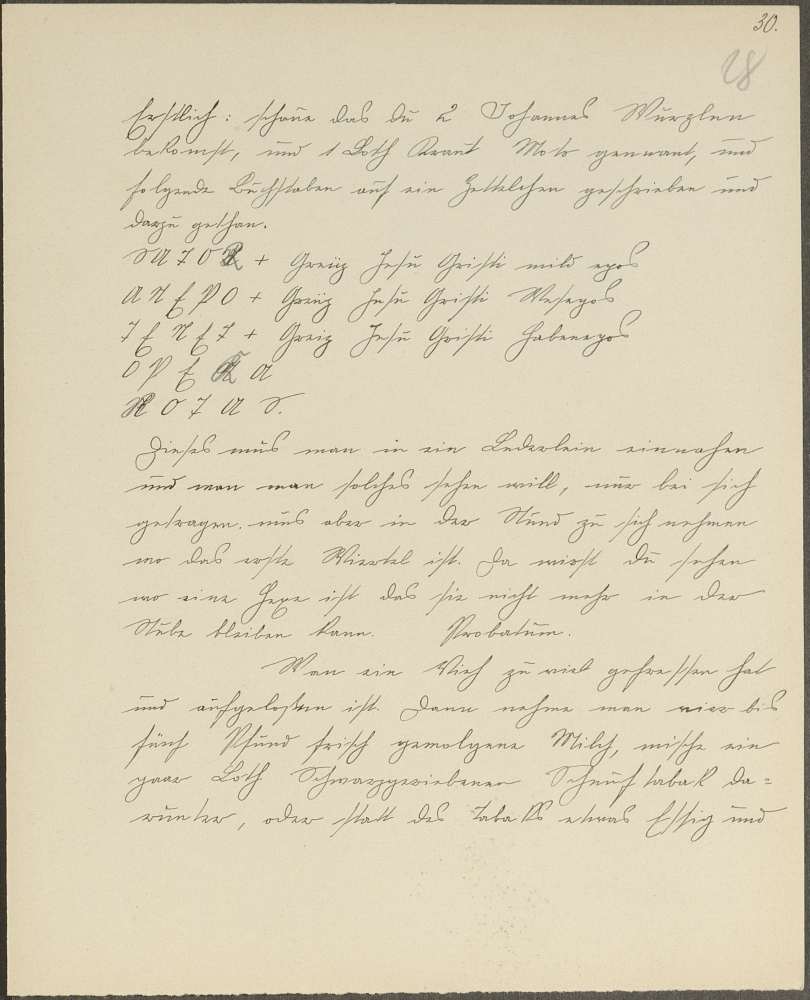 30.
28
Erstlich: schaue das du 2 Johannes Wurzlen
bekomst, und 1 Loth Kraut Moto genannt, und
folgende Buchstaben auf ein Zettelchen geschrieben und
darzu gethan.
SATOR + Greüz Jesu Gristi mild epos
AREPO + Greüz Jesu Gristi Mesepos
TENET + Greiz Jesu Gristi habenepos
OPERA
ROTAS.
Dieses mus man in ein Lederlein einnahen
und wan man solches sehen will, nur bei sich
getragen. mus aber in der Stund zu sich nehmen
wo das erste Viertel ist. Da wirst du sehen
wo eine Hexe ist das sie nicht mehr in der
Stube bleiben kann. Probatum.
Wan ein Vieh zu viel gefressen hat
und aufgeloffen ist. Dann nehme man vier bis
fünf Pfund frisch gemolgene Milch, mische ein
paar Loth Schwarzgeriebenen Schnuftabak da=
runter, oder statt des Tabaks etwas Essig und